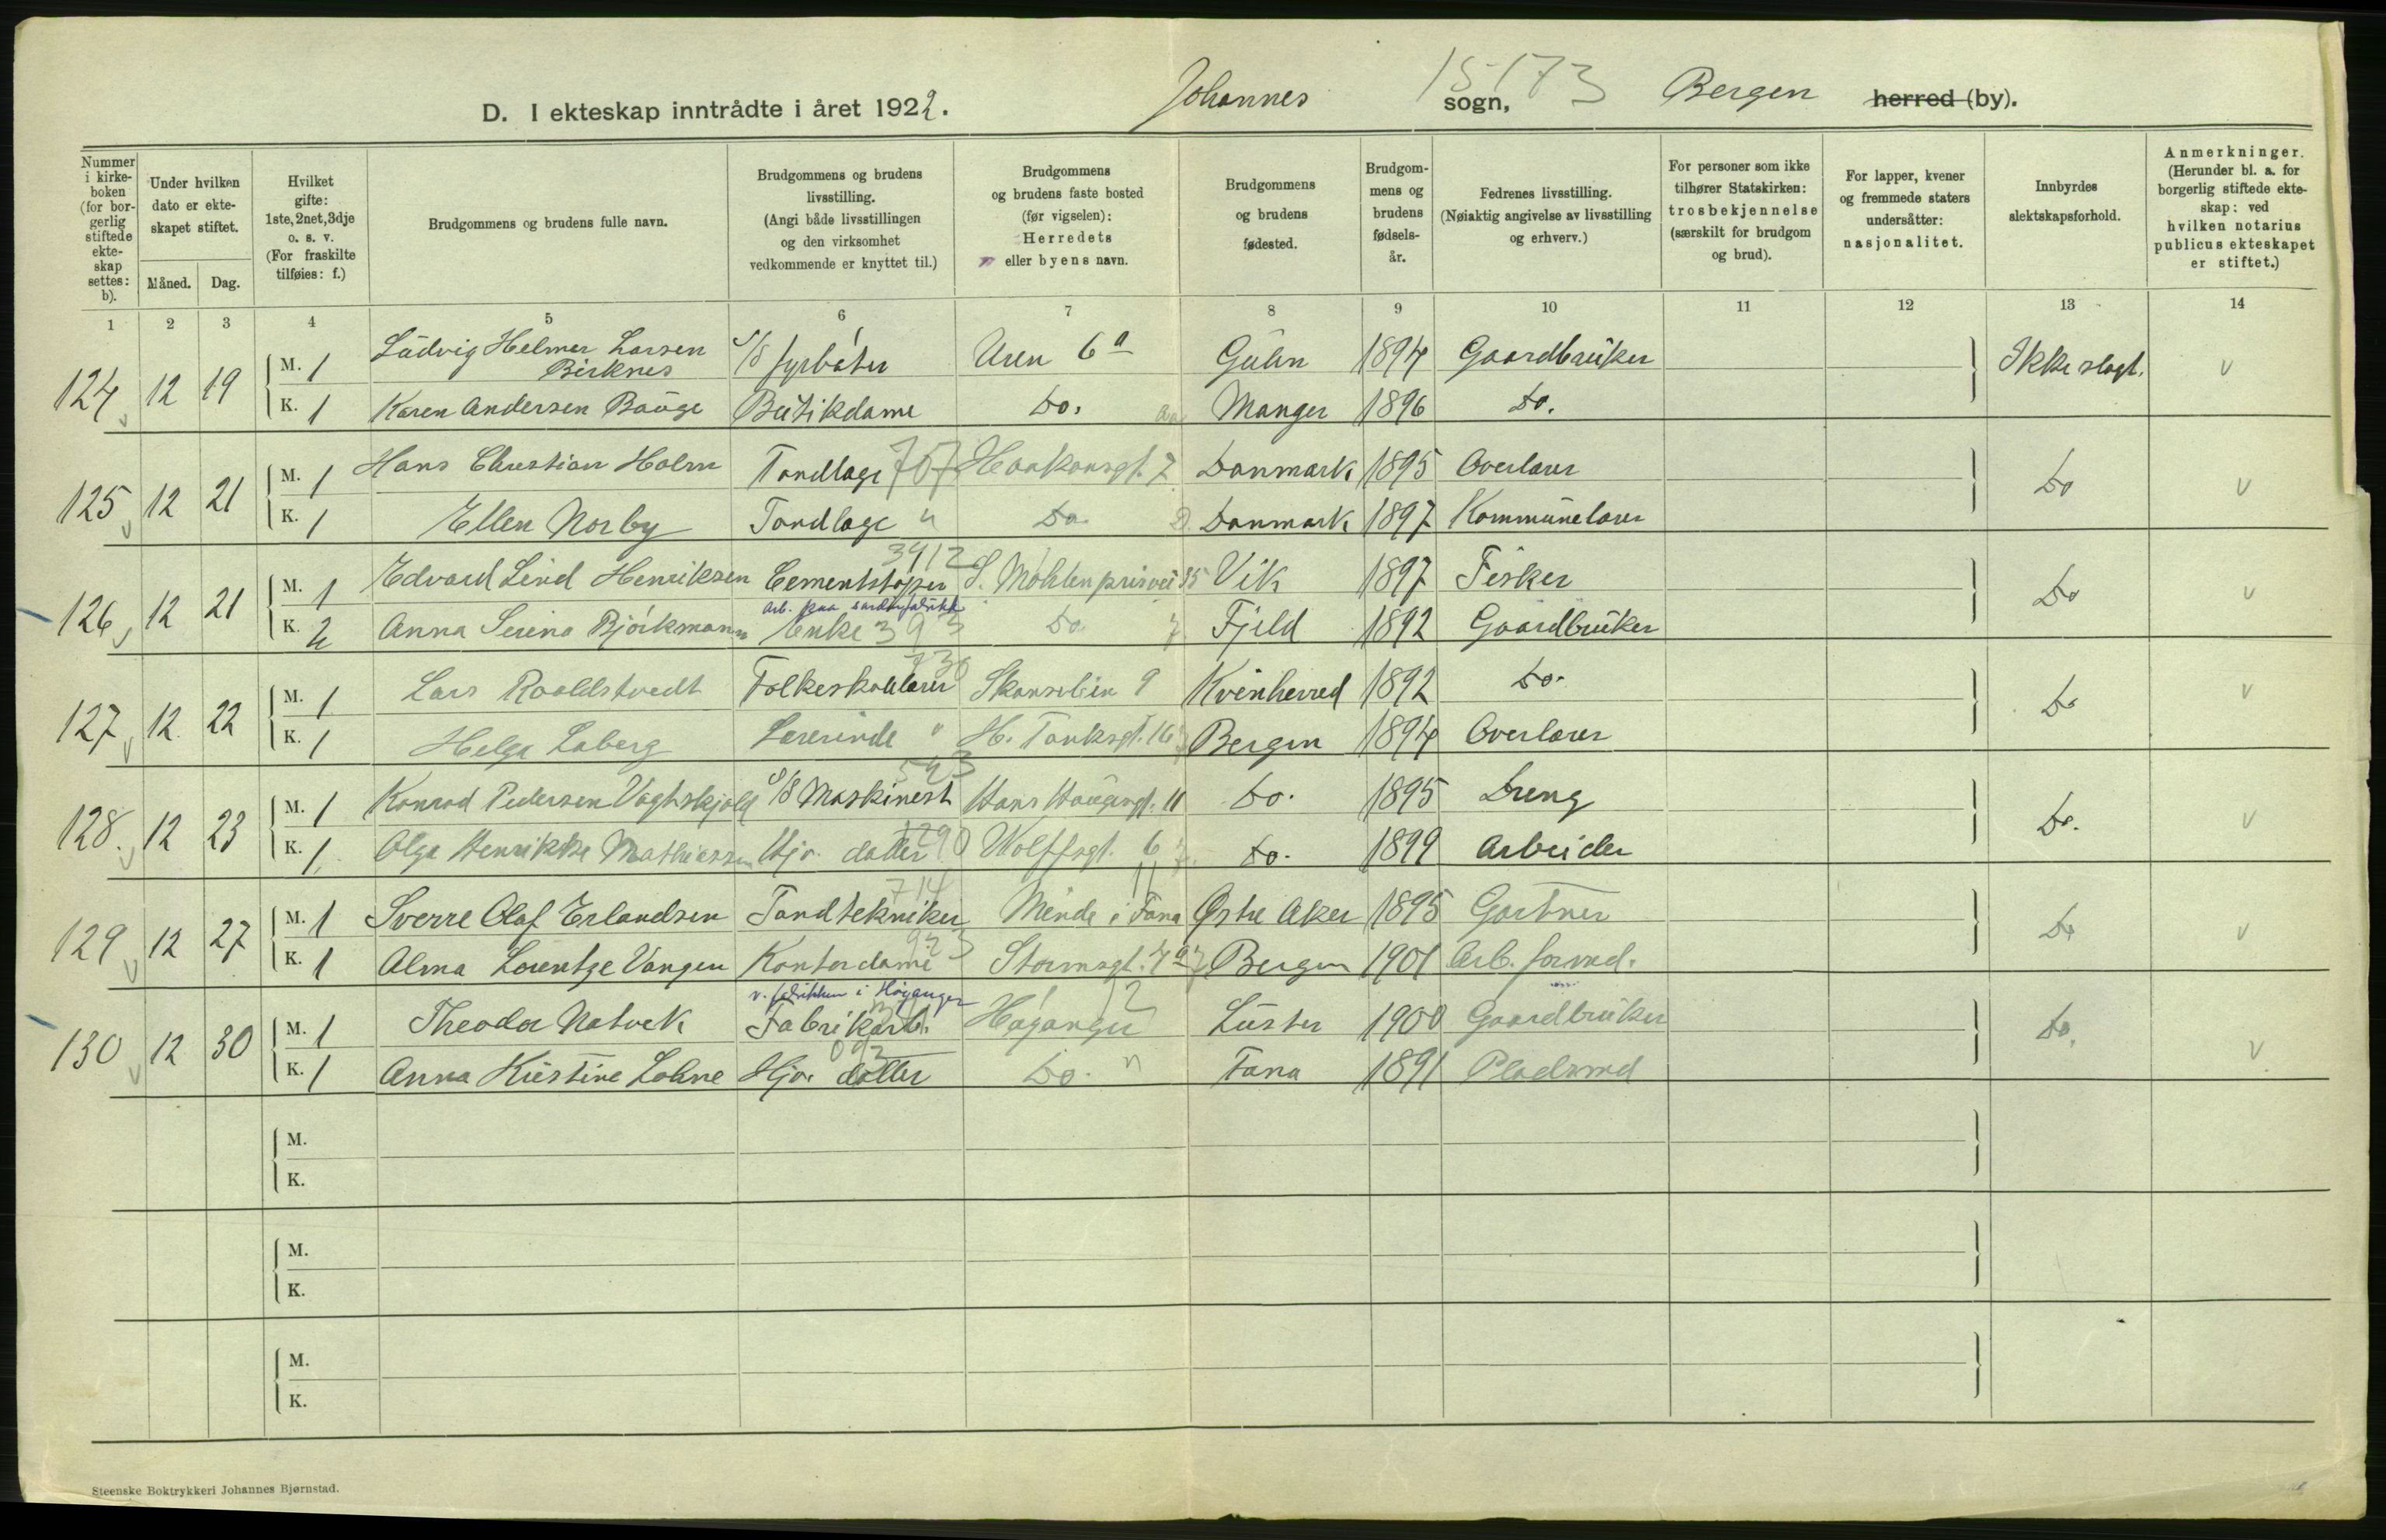 D. I ekteskap inntrådte i året 1922. Johannes sogn, 15173 Bergen herred (by).
Nummer i kirkeboken (for borgerlig stiftede ekteskap settes: b).
Under hvilken dato er ekteskapet stiftet.
Måned. Dag.
Hvilket gifte: 1ste, 2net, 3dje o. s. v. (For fraskilte tilføies: f.)
Brudgommens og brudens fulle navn.
Brudgommens og brudens livsstilling. (Angi både livsstillingen og den virksomhet vedkommende er knyttet til.)
Brudgommens og brudens faste bosted (før vigselen): Herredets eller byens navn.
Brudgommens og brudens fødested.
Brudgommens og brudens fødselsår.
Fedrenes livsstilling. (Nøiaktig angivelse av livsstilling og erhverv.)
For personer som ikke tilhører Statskirken: trosbekjennelse (særskilt for brudgom og brud).
For lapper, kvener og fremmede staters undersåtter: nasjonalitet.
Innbyrdes slektskapsforhold.
Anmerkninger. (Herunder bl. a. for borgerlig stiftede ekteskap: ved hvilken notarius publicus ekteskapet er stiftet.)
1 2 3 4 5 6 7 8 9 10 11 12 13 14
124 12 19 M. 1 Ludvig Helmer Larsen Birknes S/S fyrbøter Uren 6a Gulen 1894 Gaardbruker Ikke slegt. v
K. 1 Karen Andersen Bauge Butikdame Do. Manger 1896 Do.
125 12 21 M. 1 Hans Christian Holm Tandlæge 707 Haakonsgt. 7 Danmark 1895 Overlærer Do v
K. 1 Ellen Norby Tandlæge " Do. D. Danmark 1897 Kommunelærer
126 12 21 M. 1 Edvard Lind Henriksen Cementstøper 3912 S. Møhlenprisvei 35 Vik 1897 Fisker Do v
Arb. paa sardinfabrikk
K. 2 Anna Serina Bjørkmann Enke 393 Do. Fjeld 1892 Gaardbruker
127 12 22 M. 1 Lars Roaldstvedt Folkeskolelærer 730 Skanselien 9 Kvinherred 1892 Do. Do v
K. 1 Helga Laberg Lærerinde " H. Tanksgt. 16 Bergen 1894 Overlærer
128. 12 23 M. 1 Konrad Pedersen Vaghskjold S/S Maskinist 543 Hans Haugesgt. 11 Do. 1895 Dreng Do. v
K. 1. Olga Henrikke Mathiessen Hjv. datter Wolffsgt. 6 Do. 1899 Arbeider
129 12 27 M. 1 Sverre Olaf Erlandsen Tandtekniker 714 Minde i Fana Østre Aker 1895 Gartner Do v
K. 1 Alma Lorentze Vangen Kontordame 923 Stormsgt. 7a Bergen 1901 Arb. formd.
v. fabrikken i Høyanger
130 12 30 M. 1 Theodor Natvik Fabrikarb. Høyanger Luster 1900 Gaardbruker Do. v
K. 1 Anna Kristine Lohne Hjv. datter 092 Do. " Fana 1891 Pladsmd
M.
K.
M.
K.
M.
K.
Steenske Boktrykkeri Johannes Bjørnstad.